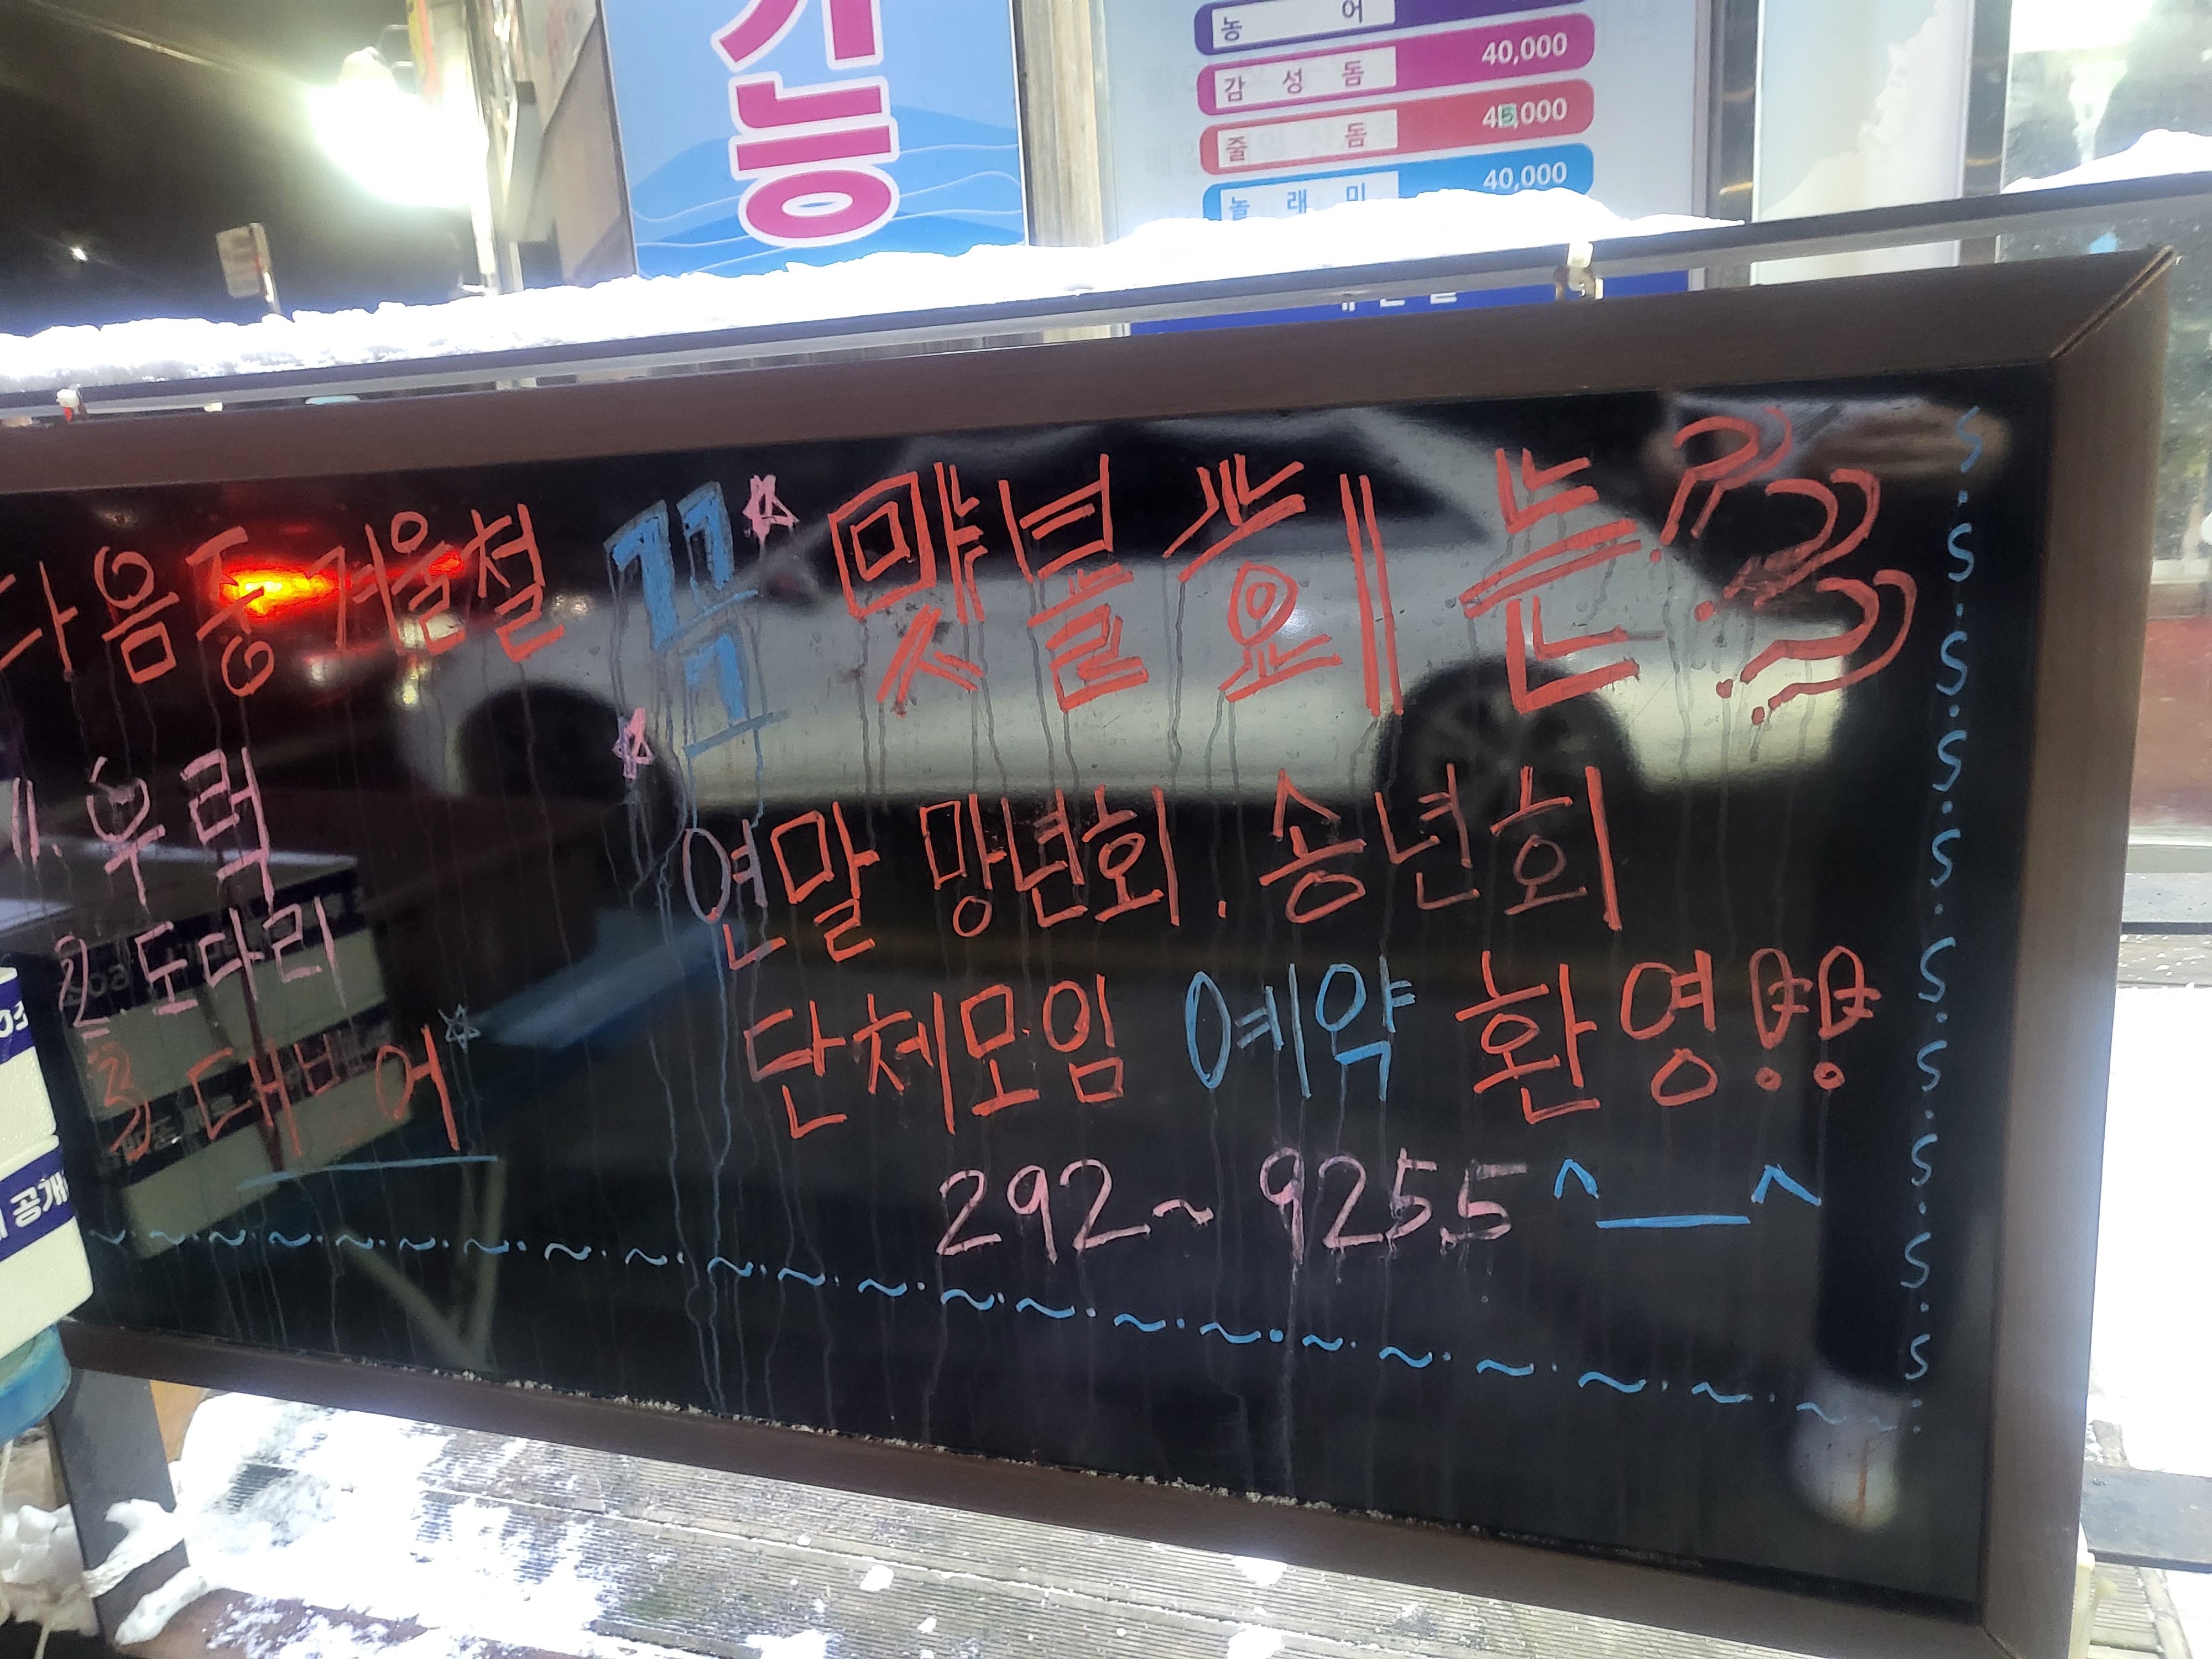 가능
농어
감성돔 40,000
줄돔 45,000
놀래미 40,000
다음중 겨울철 꼭 맛볼 회는???
1. 우럭
2. 도다리
3. 대방어
연말 망년회. 송년회
단체모임 예약 환영!!
292~9255 ^__^
공개